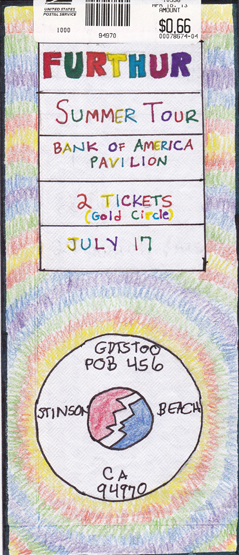 UNITED STATES
POSTAL SERVICE
1000
94970
AMOUNT
$0.66
00078674-04
FURTHUR
SUMMER TOUR
BANK OF AMERICA
PAVILION
2 TICKETS
(Gold Circle)
JULY 17
GDTSTOO
POB 456
STINSON BEACH
CA
94970